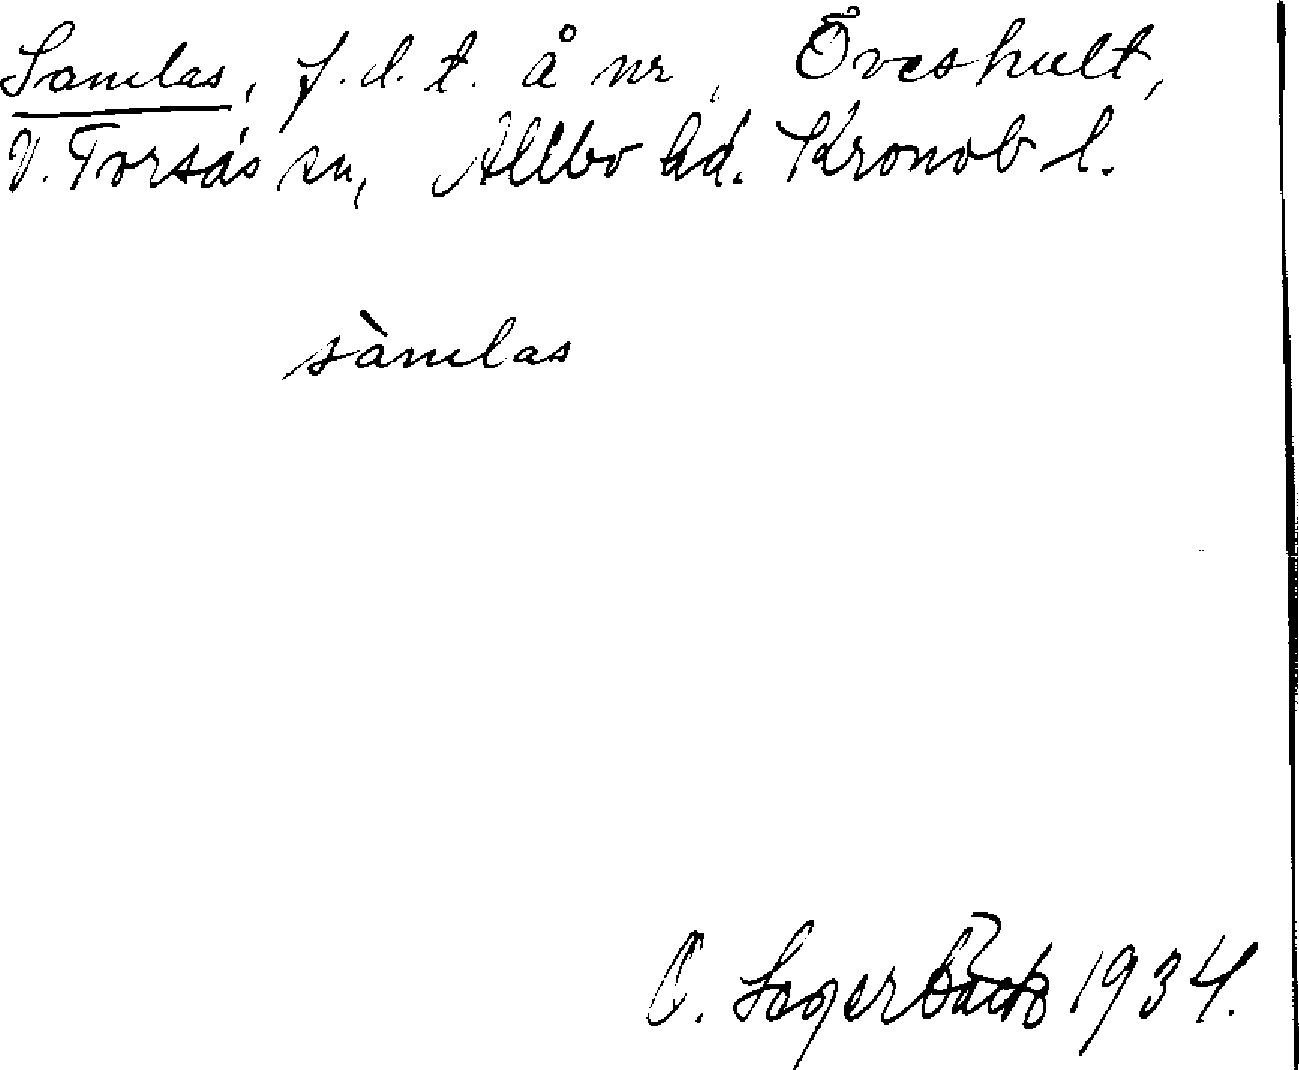 Samlas, f.d.t. å nr , Öveshult,
V. Torsås sn, Allbo hd. Kronob l.
sàmlas
C. Lagerbäck 1934.